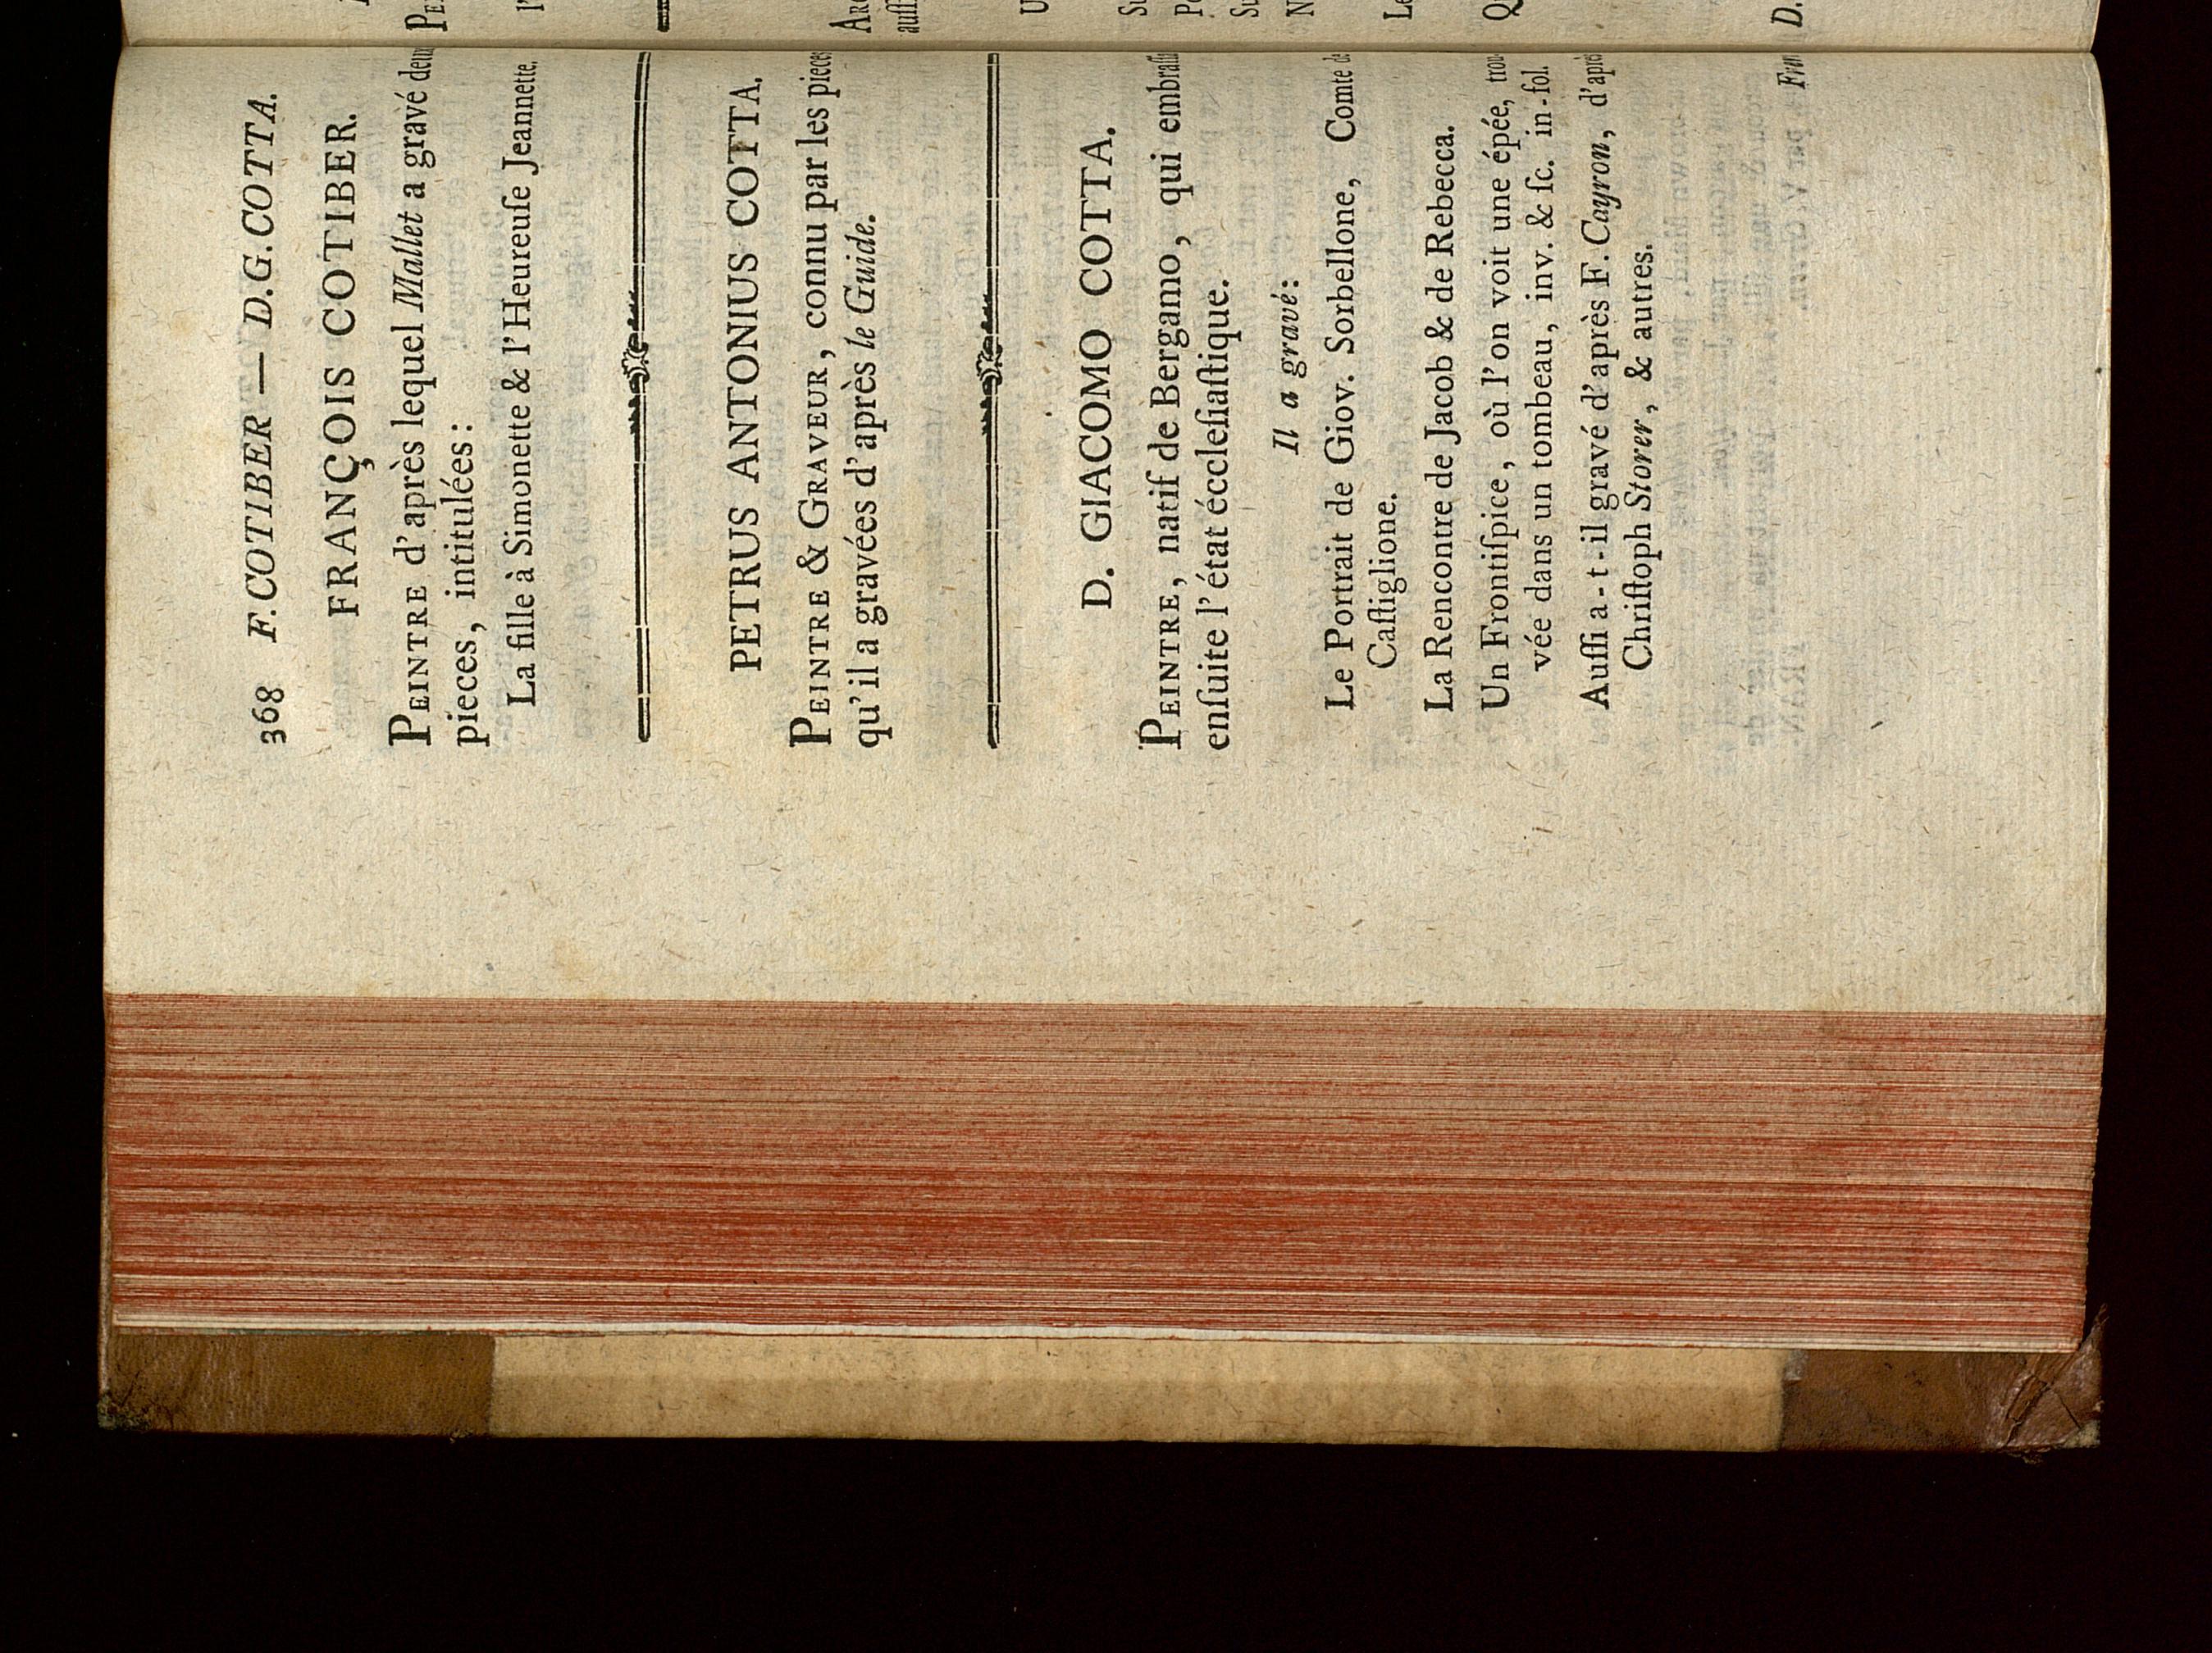 368 F. COTIBER — D. G. COTTA.
FRANÇOIS COTIBER.
PEINTRE d'après lequel Mallet a gravé deux
pieces, intitulées:
La fille à Simonette & l'Heureuſe Jeannette.
PETRUS ANTONIUS COTTA.
PEINTRE & GRAVEUR, connu par les pieces
qu'il a gravées d'après le Guide.
D. GIACOMO COTTA.
PEINTRE, natif de Bergamo, qui embraſſa
enſuite l'état éccleſiaſtique.
Il a gravé:
Le Portrait de Giov. Sorbellone, Comte de
Caſtiglione.
La Rencontre de Jacob & de Rebecca.
Un Frontiſpice, où l'on voit une épée, trou-
vée dans un tombeau, inv. & ſc. in-fol.
Auſſi a-t-il gravé d'après F. Cayron, d'après
Chriſtoph Storer, & autres.